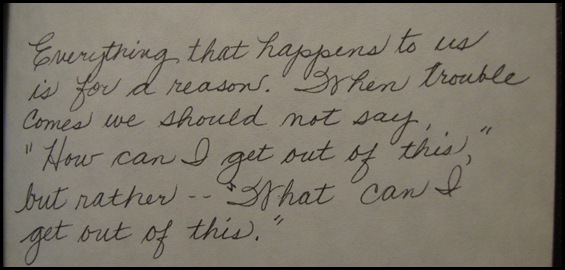 Everything that happens to us
is for a reason. When trouble
comes we should not say,
"How can I get out of this,"
but rather -- "What can I
get out of this."